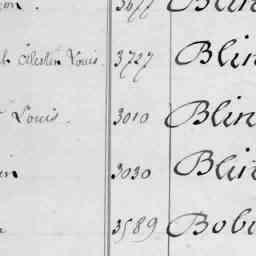 3677 Blin
Célestin Louis. 3727 Blin
Louis. 3010 Blin
in 3030 Blin
3589 Bobi